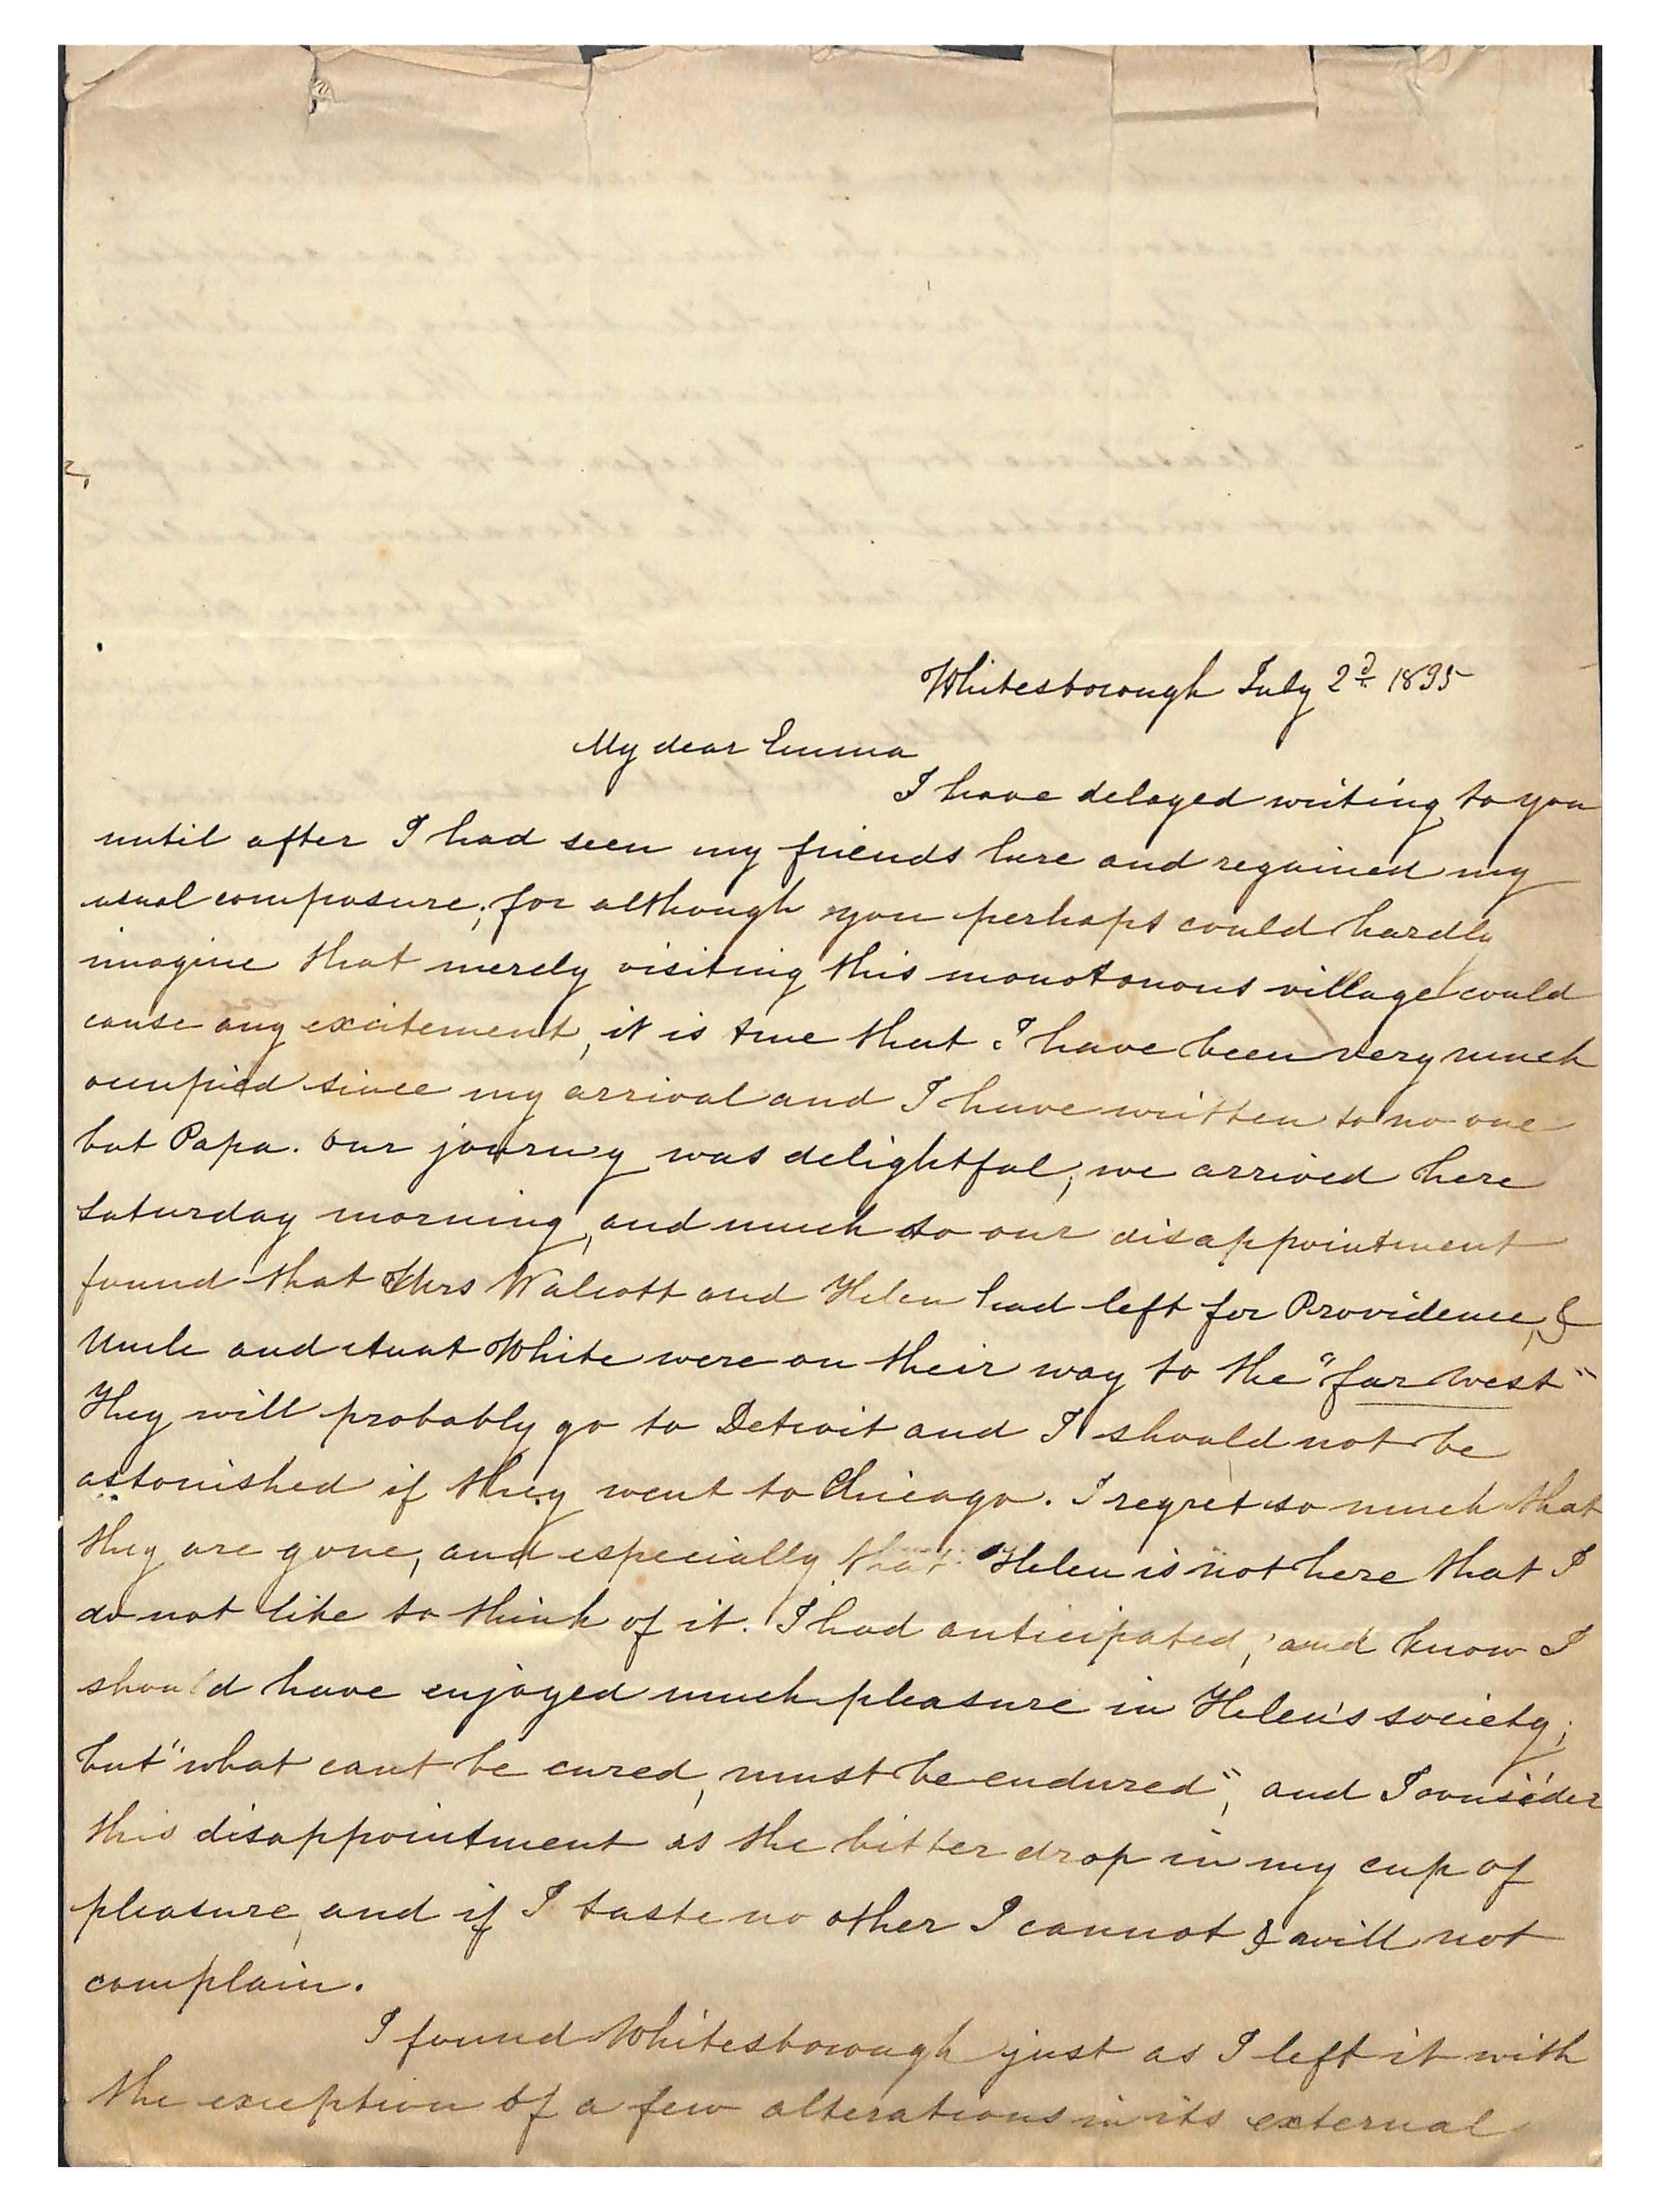 Whitesborough July 2d. 1835
My dear Emma
I have delayed writing to you
until after I had seen my friends here and regained my
usual composure; for although you perhaps could hardly
imagine that merely visiting this monotonous village could
cause any excitement, it is true that I have been very much
occupied since my arrival and I have written to no one
but Papa. Our journey was delightful; we arrived here
Saturday morning, and much to our disappointment
found that Mrs Walcott and Helen had left for Providence, &
Uncle and Aunt White were on their way to the "far West"
They will probably go to Detroit and I should not be
astonished if they went to Chicago. I regret so much that
they are gone, and especially that Helen is not here that I
do not like to think of it. I had anticipated, and know I
should have enjoyed much pleasure in Helen's society;
but "what cant be cured, must be endured", and I consider
this disappointment as the bitter drop in my cup of
pleasure, and if I taste no other I cannot & will not
complain.
I found Whitesborough just as I left it with
the exception of a few alterations in its external